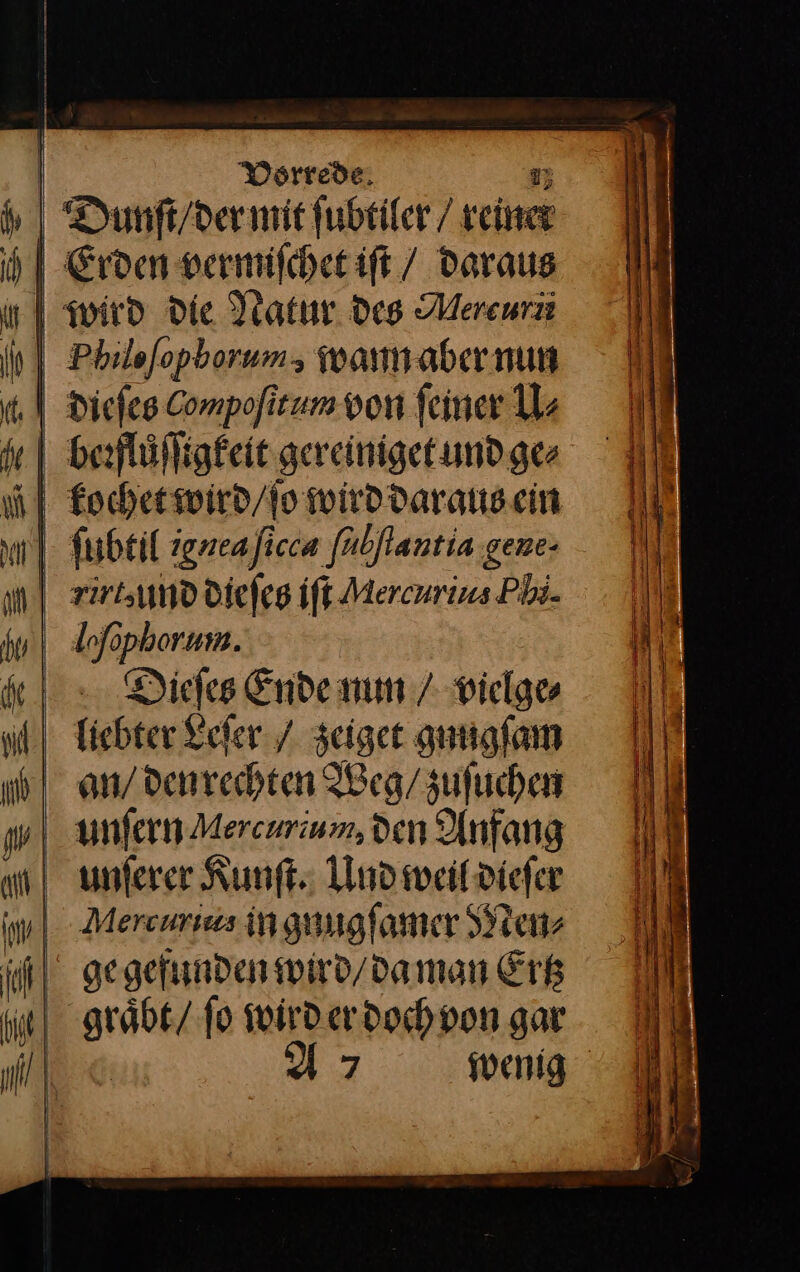 Vorrede. 13
Dunſt/der mit ſubtiler / reiner
Erden vermiſchet iſt / daraus
wird die Natur des Mercurii
Philoſophorum, wann aber nun
dieſes Compoſitum von ſeiner U⸗
beꝛfluͤſſigkeit gereiniget und ge⸗
kochet wird/ſo wird daraus ein
ſubtil ignea ſicca ſubſtantia gene-
rirt, und dieſes iſt Mercurius Phi-
loſophorum.
Dieſes Ende nun / vielge⸗
liebter Leſer / zeiget gnugſam
an/ den rechten Weg/ zuſuchen
unſern Mercurium, den Anfang
unſerer Kunſt. Und weil dieſer
Mercurius in gnugſamer Men⸗
ge gefunden wird/ da man Ertz
graͤbt/ ſo wird er doch von gar
A 7 wenig